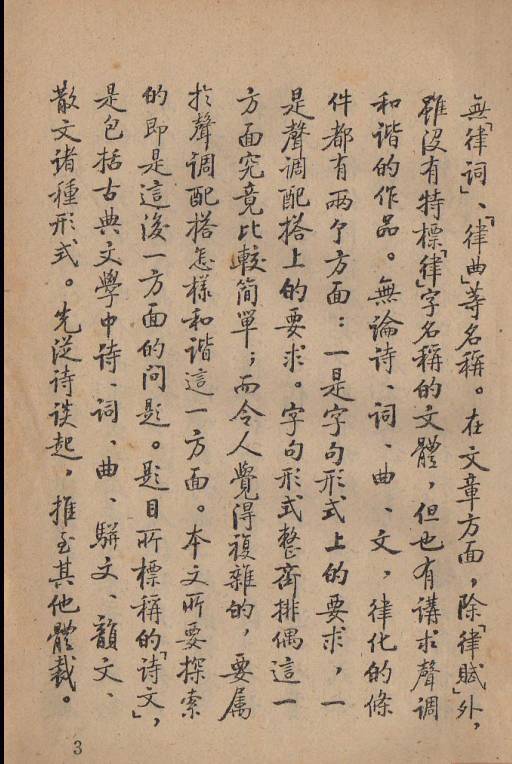 無「律詞」、「律曲」等名稱。在文章方面，除「律賦」外，
雖没有特標「律」字名稱的文體，但也有講求聲調
和諧的作品。無論詩、詞、曲、文，律化的條
件都有兩个方面：一是字句形式上的要求，一
是聲調配搭上的要求。字句形式整齊排偶這一
方面究竟比較簡單；而令人覺得複雜的，要属
扵聲調配搭怎樣和諧這一方面。本文所要探索
的即是這後一方面的问题。题目所標稱的「诗文」，
是包括古典文學中诗、词、曲、駢文、韻文、
散文诸種形式。先從诗谈起，推至其他體裁。
3